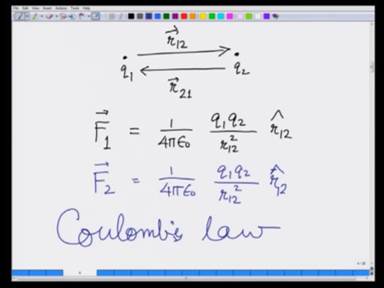 r⃗12
q1 q2
r⃗21
F⃗1 = 1/4πϵ0 q1q2/r12² r̂12
F⃗2 = 1/4πϵ0 q1q2/r12² r̂12
Coulomb's law